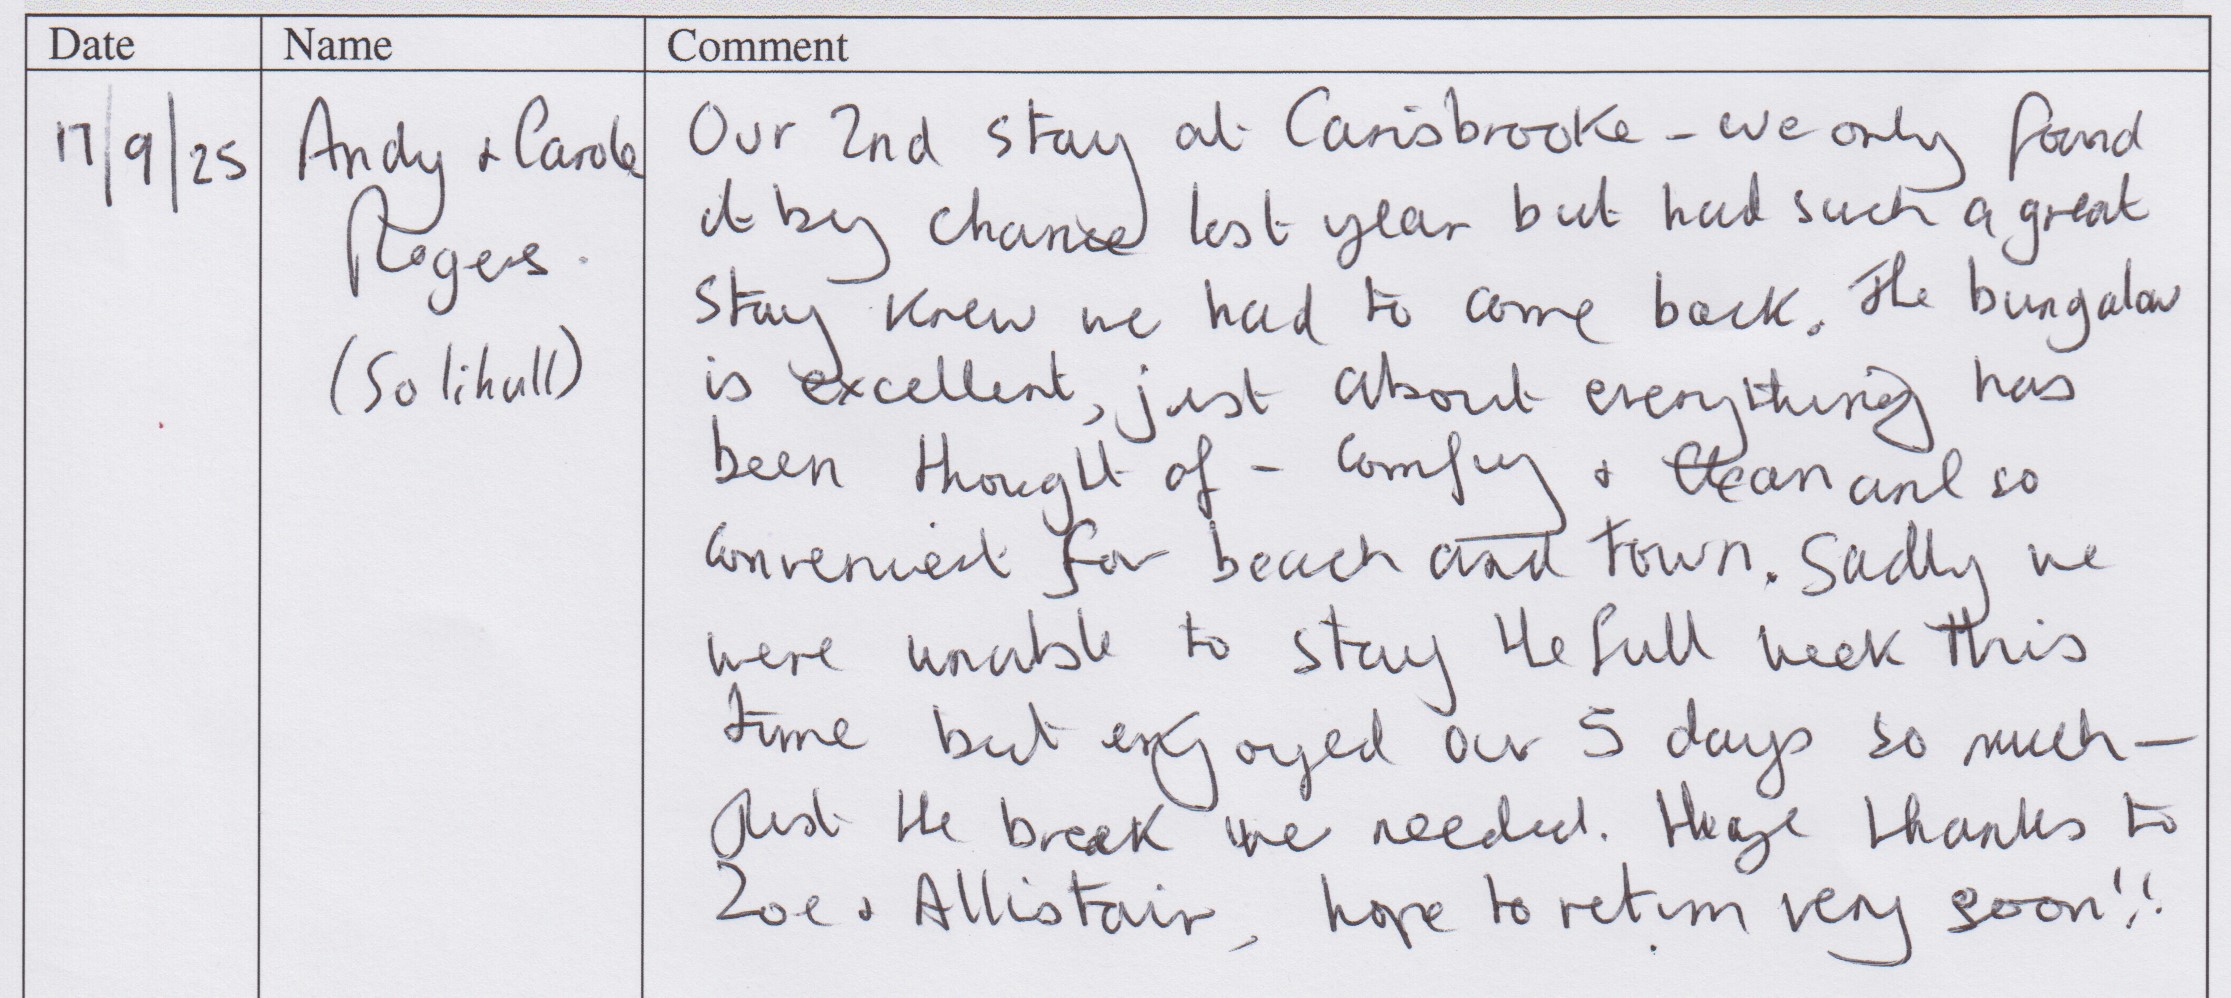 Date Name Comment
17/9/25
Andy + Carole
Rogers.
(Solihull)
Our 2nd stay at Carisbrooke - we only found
it by chance last year but had such a great
stay knew we had to come back. The bungalow
is excellent, just about everything has
been thought of - comfy + clean and so
convenient for beach and town. Sadly we
were unable to stay the full week this
time but enjoyed our 5 days so much -
Just the break we needed. Huge thanks to
Zoe + Allistair, hope to return very soon!!